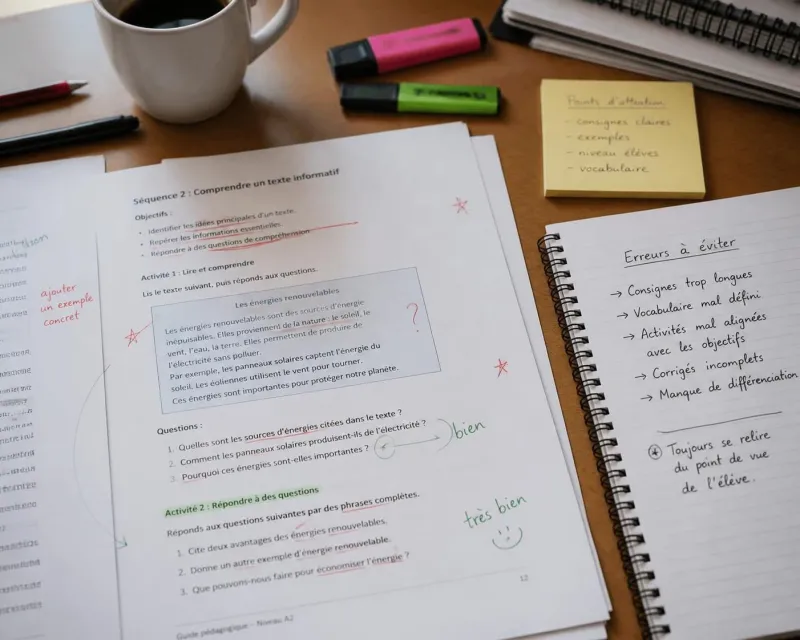 Séquence 2 : Comprendre un texte informatif
Objectifs :
• Identifier les idées principales d'un texte.
• Repérer les informations essentielles.
• Répondre à des questions de compréhension.
Activité 1 : Lire et comprendre
Lis le texte suivant, puis réponds aux questions.
Les énergies renouvelables
Les énergies renouvelables sont des sources d'énergie
inépuisables. Elles proviennent de la nature : le soleil, le
vent, l'eau, la terre. Elles permettent de produire de
l'électricité sans polluer.
Par exemple, les panneaux solaires captent l'énergie du
soleil. Les éoliennes utilisent le vent pour tourner.
Ces énergies sont importantes pour protéger notre planète.
?
Questions :
1. Quelles sont les sources d'énergies citées dans le texte ?
2. Comment les panneaux solaires produisent-ils de l'électricité ?
3. Pourquoi ces énergies sont-elles importantes ?
bien
Activité 2 : Répondre à des questions
Réponds aux questions suivantes par des phrases complètes.
1. Cite deux avantages des énergies renouvelables.
2. Donne un autre exemple d'énergie renouvelable.
3. Que pouvons-nous faire pour économiser l'énergie ?
très bien
12
Guide pédagogique - Niveau A2
ajouter
un exemple
concret
Points d'attention
- consignes claires
- exemples
- niveau élèves
- vocabulaire
Erreurs à éviter
→ Consignes trop longues
→ Vocabulaire mal défini
→ Activités mal alignées
avec les objectifs
→ Corrigés incomplets
→ Manque de différenciation
Toujours se relire
du point de vue
de l'élève.